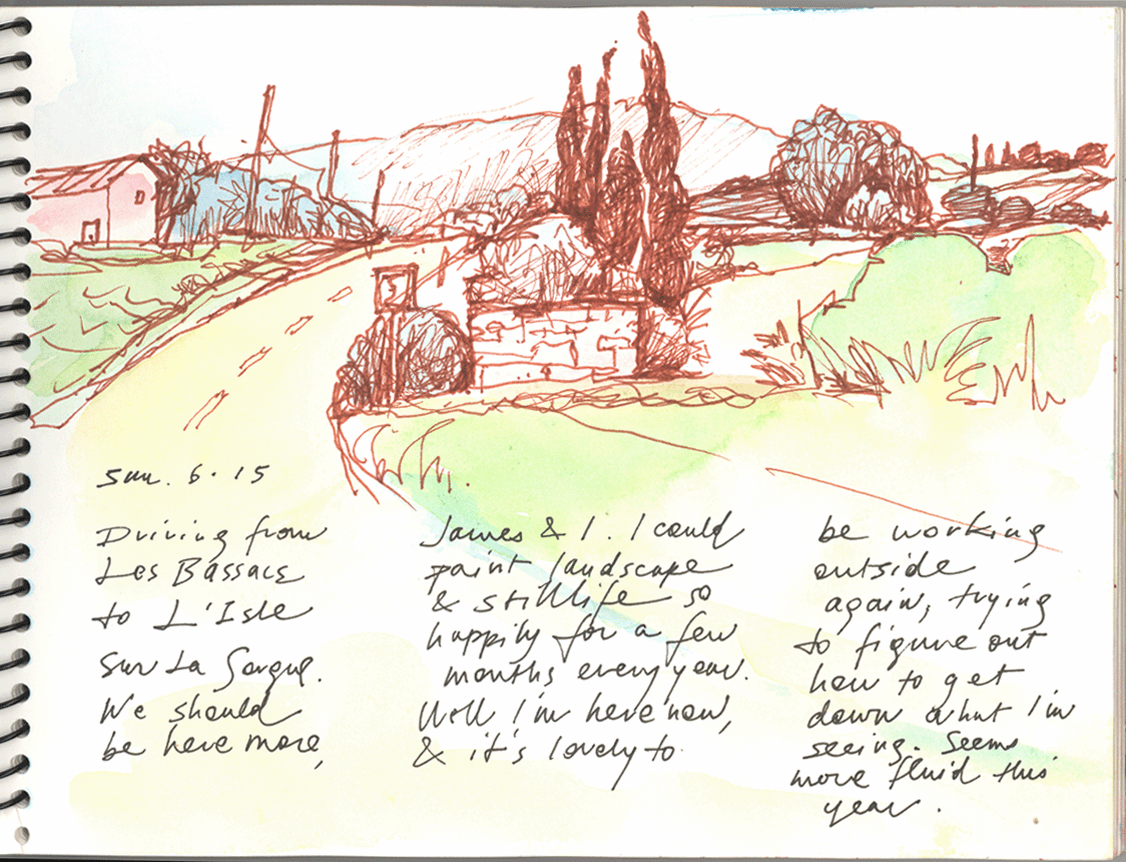 5
sun. 6.15
Driving from
Les Bassacs
to L'Isle
sur La Sorgue.
We should
be here more,
James & I. I could
paint landscape
& still life so
happily for a few
months every year.
Well I'm here now,
& it's lovely to
be working
outside
again, trying
to figure out
how to get
down what I'm
seeing. Seems
more fluid this
year.